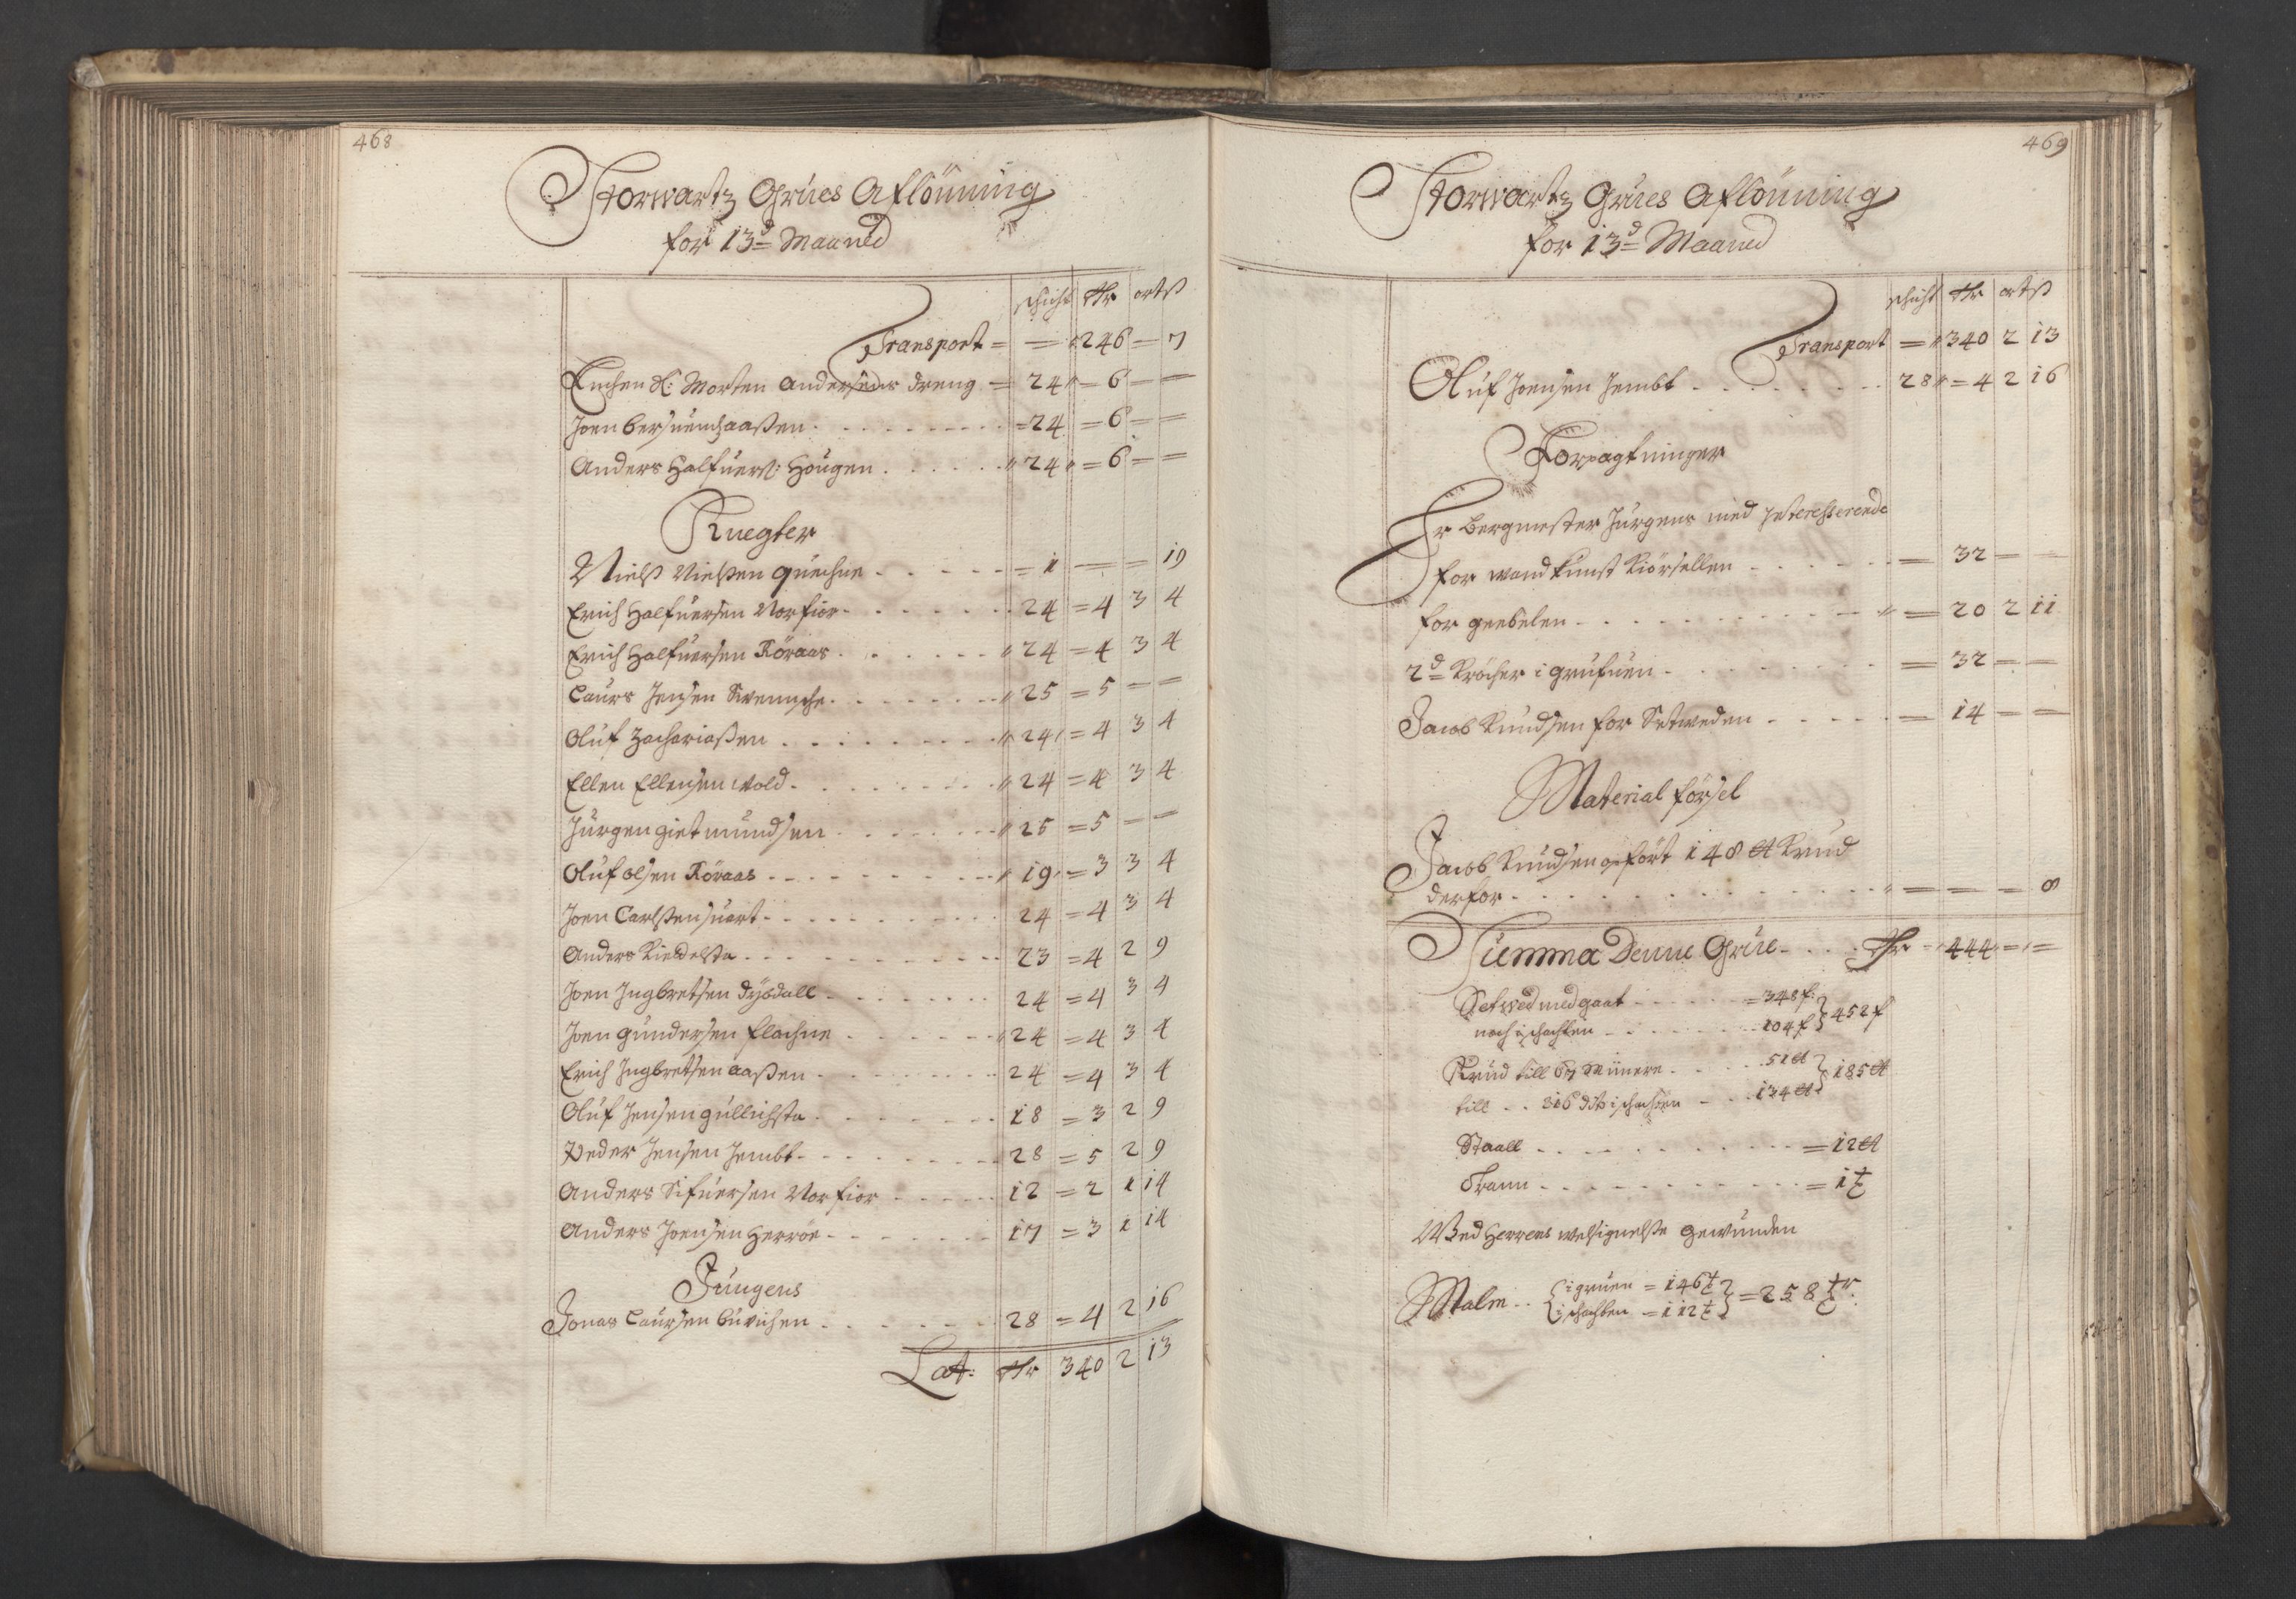 468
Storwartz Grues Aflönning
for 13d Maaned
schicht Rdr ort ß
Transport = — 246 — 7
Enchen S: Morten Andersens dreng = 24 = 6 — —
Joen Aaßen = 24 = 6 — —
Anders Halfuerß: Hougen 24 = 6 — —
Knegter
Nielß Nielßen quechne = 1 — — 19
Erich Halfuersen Norfior 24 = 4 3 4
Erich Halfuersen Röraas 24 = 4 3 4
Laurs Jensen Swenische 25 = 5 — —
Oluf Zachariaßen 24 = 4 3 4
Ellen Ellensen wold 24 = 4 3 4
Jürgen gietmundsen 25 = 5 — —
Oluf olsen Röraas 19 = 3 3 4
Joen Carlßen suart 24 = 4 3 4
Anders Kieldelsta 23 = 4 2 9
Joen Ingbretsen dÿbdall 24 = 4 3 4
Joen gundersen flachne 24 = 4 3 4
Erich Ingbretsen aaßen 24 = 4 3 4
Oluf Jensen gullichsta 18 = 3 2 9
Peder Jensen Jembt 28 = 5 2 9
Anders Sifuersen Norfior 12 = 2 1 14
Anders Joensen Herröe 17 = 3 1 14
Jungens
Jonas Laursen burichen 28 = 4 2 16
Lat: Rdr 340 2 13
469
Storwartz Grues Aflönning
for 13d Maaned
schicht Rdr ort ß
Transport = 340 2 13
Oluf Joensen Jembt 28 = 4 2 16
Forpagtninger
Hr Bergmester Jürgens med Interesserende
for wandkunst Kiörsellen = 32 — —
for geebelen = 20 2 11
2d Kröcher i grufuen = 32 — —
Jacob Knudsen for Setweden = 14 — —
Material försel
Jacob Knudsen opfört 148 ℔ Krud
derfor = — — 8
Summa Denne Grue Rdr = 444 = =
Setwed medgaat = 348 f:
noch i schachten 104 f } 452 f
Krud till 67 Minere 51 ℔
till 316 dito i schachten 134 ℔ } 185 ℔
Staall = 12 ℔
Trann = 1 t
Wed Herrens welsignelße gewunden
Malm { i gruen = 146 t
i schachten = 112 t } = 258 tr: